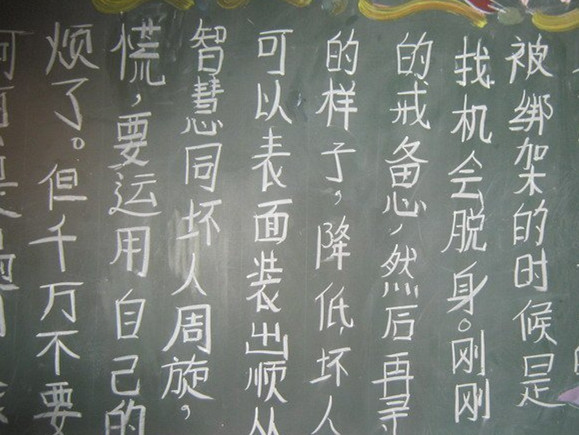 烦了。但千万不要
慌，要运用自己的
智慧同坏人周旋，
可以表面装出顺从
的样子，降低坏人
的戒备心，然后再寻
找机会脱身。刚刚
被绑架的时候是